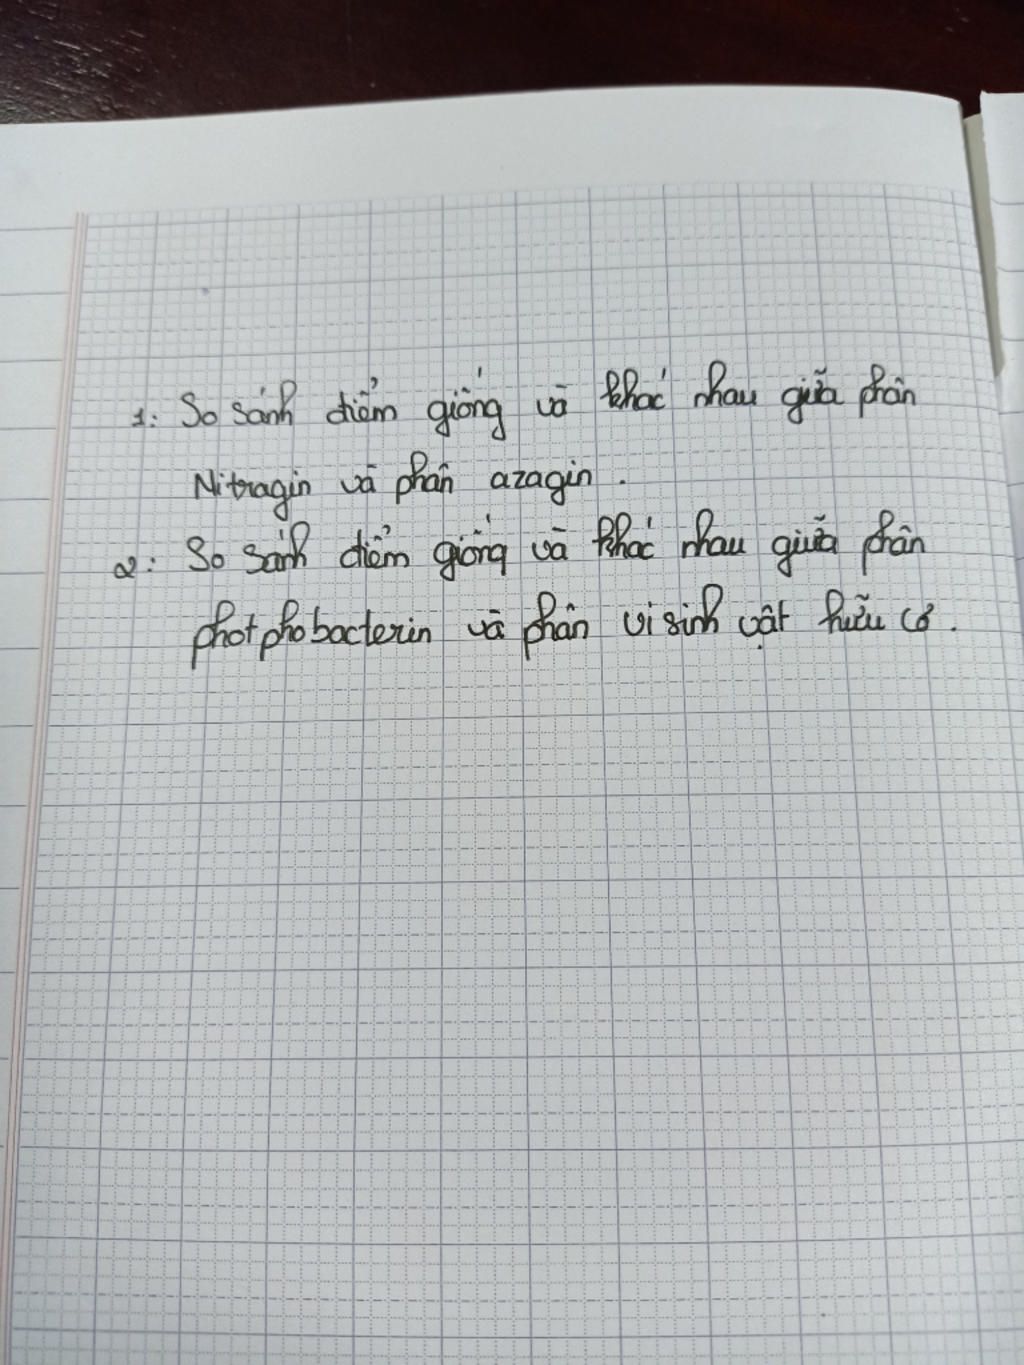 1: So sánh điểm giống và khác nhau giữa phân
Nitragin và phân azagin.
2: So sánh điểm giống và khác nhau giữa phân
photphobacterin và phân vi sinh vật hữu cơ.